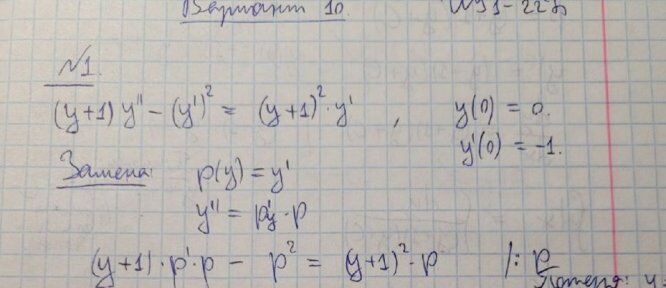 Вариант 10
№1.
(y+1) y'' - (y')² = (y+1)² · y' , y(0) = 0.
y'(0) = -1.
Замена: p(y) = y'
y'' = p'y · p
(y+1) · p' · p - p² = (y+1)² · p /: p